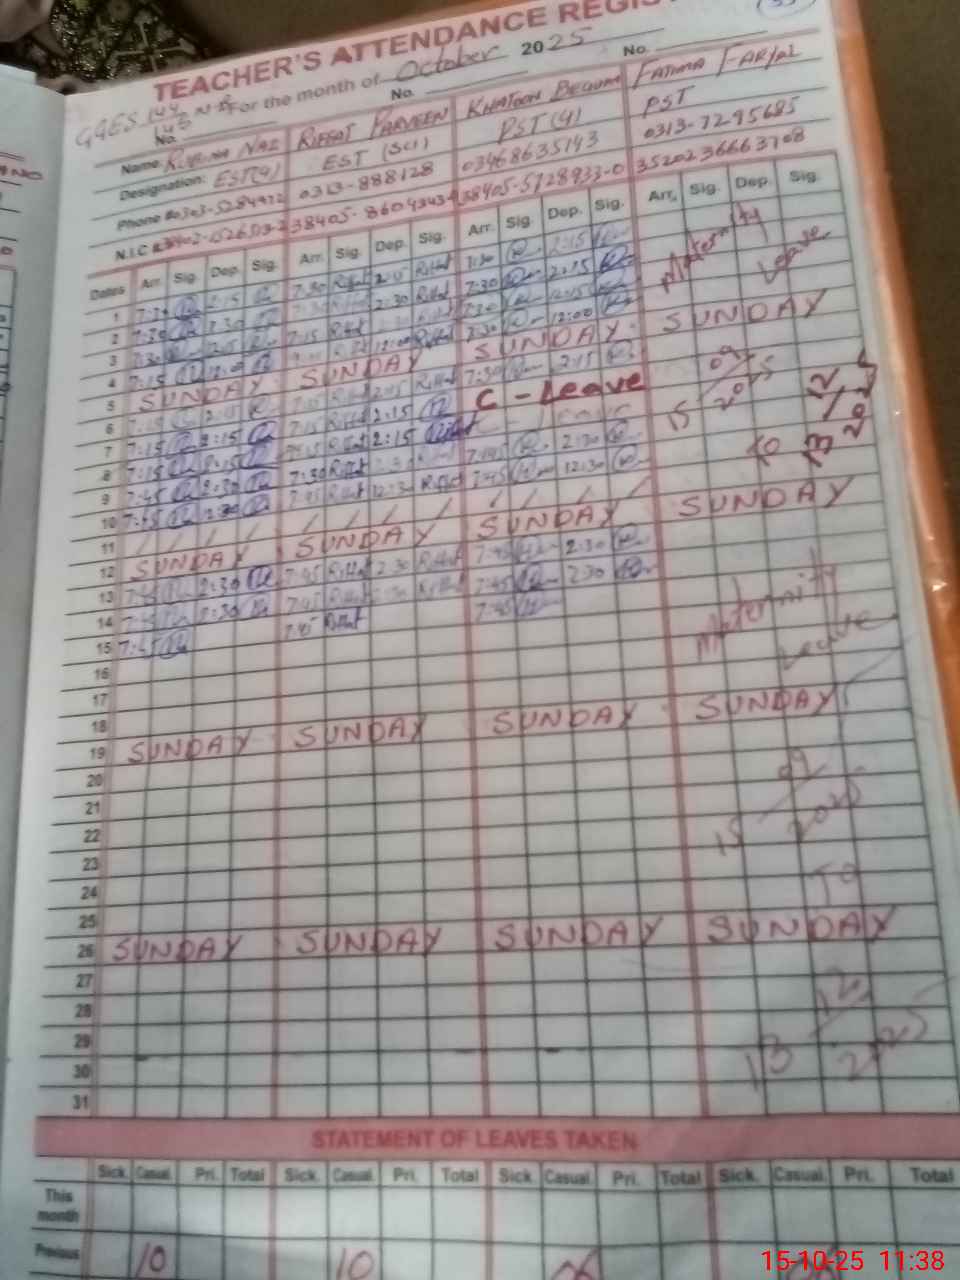 TEACHER'S ATTENDANCE REGIST
For the month of October 2025
GGES 144 N-B
No. No. No.
Name RUBINA NAZ RIFFAT PARVEEN KHATOON BEGUM FATIMA FARYAL
Designation: EST(4) EST (SCI) PST(4) PST
Phone # 0303-5284972 0313-888128 03468635143 0313-7295685
N.I.C # 38405-5728933-0 3520236663708
Dates Arr. Sig. Dep. Sig. Arr. Sig. Dep. Sig. Arr. Sig. Dep. Sig. Arr. Sig. Dep. Sig.
1 7:30 2:15 7:30 Riffat 2:15 Riffat 7:30 2:15 Maternity
2 7:30 2:30 7:30 Riffat 2:30 Riffat 7:30 2:15 Leave
3 7:30 7:15 Riffat Riffat 7:30 12:15
4 7:15 12:00 Riffat 12:00 Riffat 7:30 12:00
5 SUNDAY SUNDAY SUNDAY SUNDAY
6 7:15 2:15 7:15 Riffat 2:15 Riffat 7:30 2:15 09
7 7:15 2:15 7:15 Riffat 2:15 C - Leave 15 2025
8 7:15 2:15 7:15 Riffat 2:15 Leave 12
9 7:45 2:30 7:30 Riffat 2:30 Riffat 7:45 2:30 to 13 2025
10 7:45 12:30 7:45 Riffat 12:30 Riffat 7:45 12:30
11 / / / / / / / / / / / /
12 SUNDAY SUNDAY SUNDAY SUNDAY
13 7:45 2:30 7:45 Riffat 2:30 Riffat 7:45 2:30
14 7:45 2:30 7:45 Riffat 2:30 Riffat 7:45 2:30
15 7:45 7:45 Riffat 7:45 Maternity
16 Leave
17
18
19 SUNDAY SUNDAY SUNDAY SUNDAY
20
21 09
22 15 2025
23
24
25 TO
26 SUNDAY SUNDAY SUNDAY SUNDAY
27
28
29 12
30 13 2025
31
STATEMENT OF LEAVES TAKEN
Sick. Casual. Pri. Total Sick. Casual. Pri. Total Sick. Casual. Pri. Total Sick. Casual. Pri. Total
This month
Previous 10 10
15-10-25 11:38